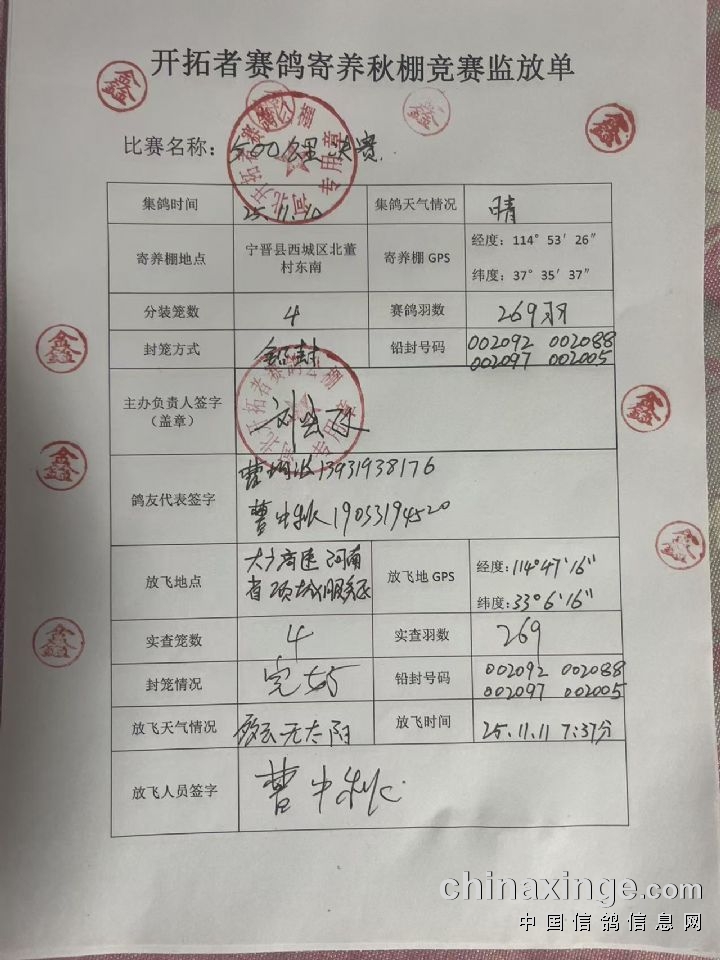 开拓者赛鸽寄养秋棚竞赛监放单
比赛名称：500公里决赛
集鸽时间 25.11.10 集鸽天气情况 晴
寄养棚地点 宁晋县西城区北董村东南 寄养棚 GPS 经度：114° 53′ 26″
纬度：37° 35′ 37″
分装笼数 4 赛鸽羽数 269羽
封笼方式 铅封 铅封号码 002092 002088
002097 002005
主办负责人签字
（盖章）
鸽友代表签字 13931938176
19053194520
放飞地点 大广高速河南
省项城服务区 放飞地 GPS 经度:114°47′16″
纬度:33°6′16″
实查笼数 4 实查羽数 269
封笼情况 完好 铅封号码 002092 002088
002097 002005
放飞天气情况 无太阳 放飞时间 25.11.11 7:37分
放飞人员签字
河北开拓者赛鸽公棚
专用章
鑫
鑫
鑫
鑫
鑫
鑫
鑫
chinaxinge.com
中国信鸽信息网